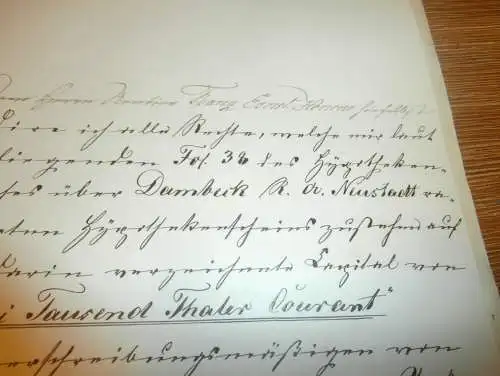 Herrn Rentier Franz
dire ich alle Rechte, welche mir laut
liegenden Fol. 32 des Hypotheken-
hes über Dambeck R. A. Neustadt ra-
ten Hypothekenscheins zustehen auf
darin verzeichnete Capital von
i Tausend Thaler Courant"
erschreibungsmäßigen von